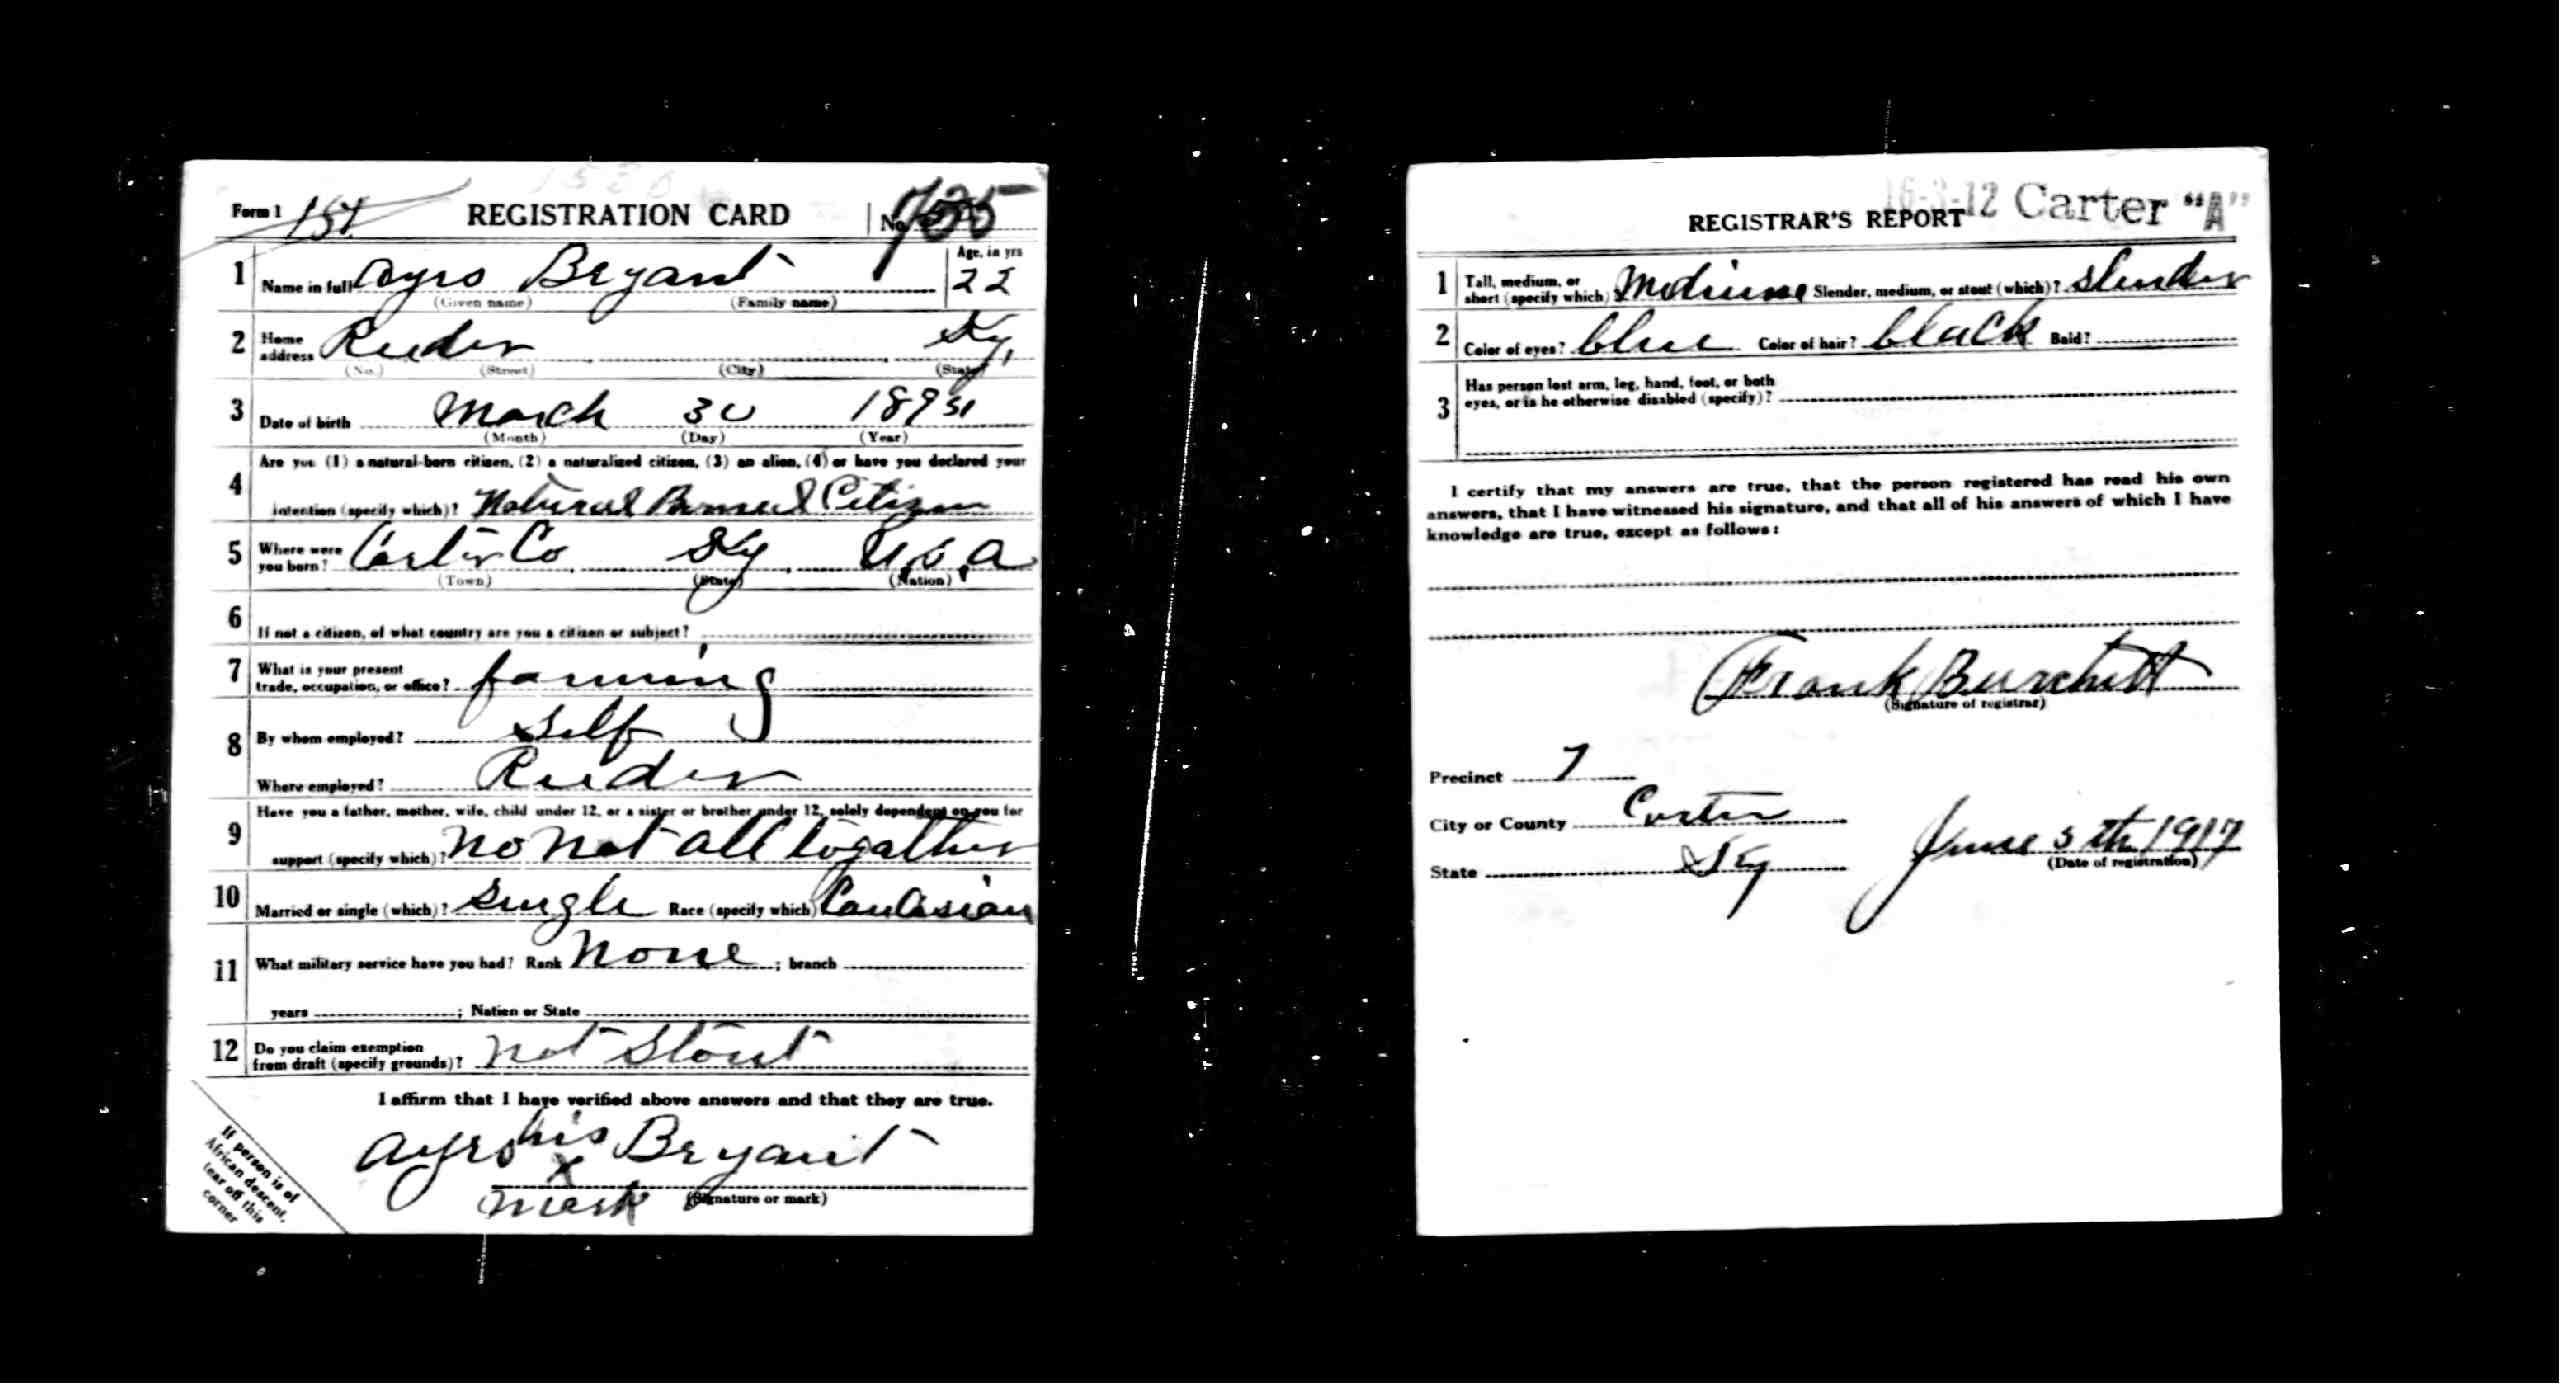 Form 1 151 REGISTRATION CARD No.
1 Name in full Ayro Bryant Age, in yrs 22
(Given name) (Family name)
2 Home address Reeder Ky,
(No.) (Street) (City) (State)
3 Date of birth March 30 189
(Month) (Day) (Year)
4 Are you (1) a natural-born citizen, (2) a naturalized citizen, (3) an alien, (4) or have you declared your
intention (specify which)? Natural Citizen
5 Where were you born? Carter Co Ky U.S.A
(Town) (State) (Nation)
6 If not a citizen, of what country are you a citizen or subject?
7 What is your present trade, occupation, or office? farming
8 By whom employed? Self
Where employed? Reeder
9 Have you a father, mother, wife, child under 12, or a sister or brother under 12, solely dependent on you for
support (specify which)? No not all togather
10 Married or single (which)? Single Race (specify which) Caucasian
11 What military service have you had? Rank None ; branch
years ; Nation or State
12 Do you claim exemption from draft (specify grounds)? Not Stout
I affirm that I have verified above answers and that they are true.
Ayro his Bryant
X
mark (Signature or mark)
If person is of
African descent,
tear off this
corner
16-3-12 Carter "A"
REGISTRAR'S REPORT
1 Tall, medium, or short (specify which)? Medium Slender, medium, or stout (which)? Slender
2 Color of eyes? blue Color of hair? black Bald?
3 Has person lost arm, leg, hand, foot, or both
eyes, or is he otherwise disabled (specify)?
I certify that my answers are true, that the person registered has read his own
answers, that I have witnessed his signature, and that all of his answers of which I have
knowledge are true, except as follows:
Frank Burchett
(Signature of registrar)
Precinct 7
City or County Carter
State Ky June 5th 1917
(Date of registration)